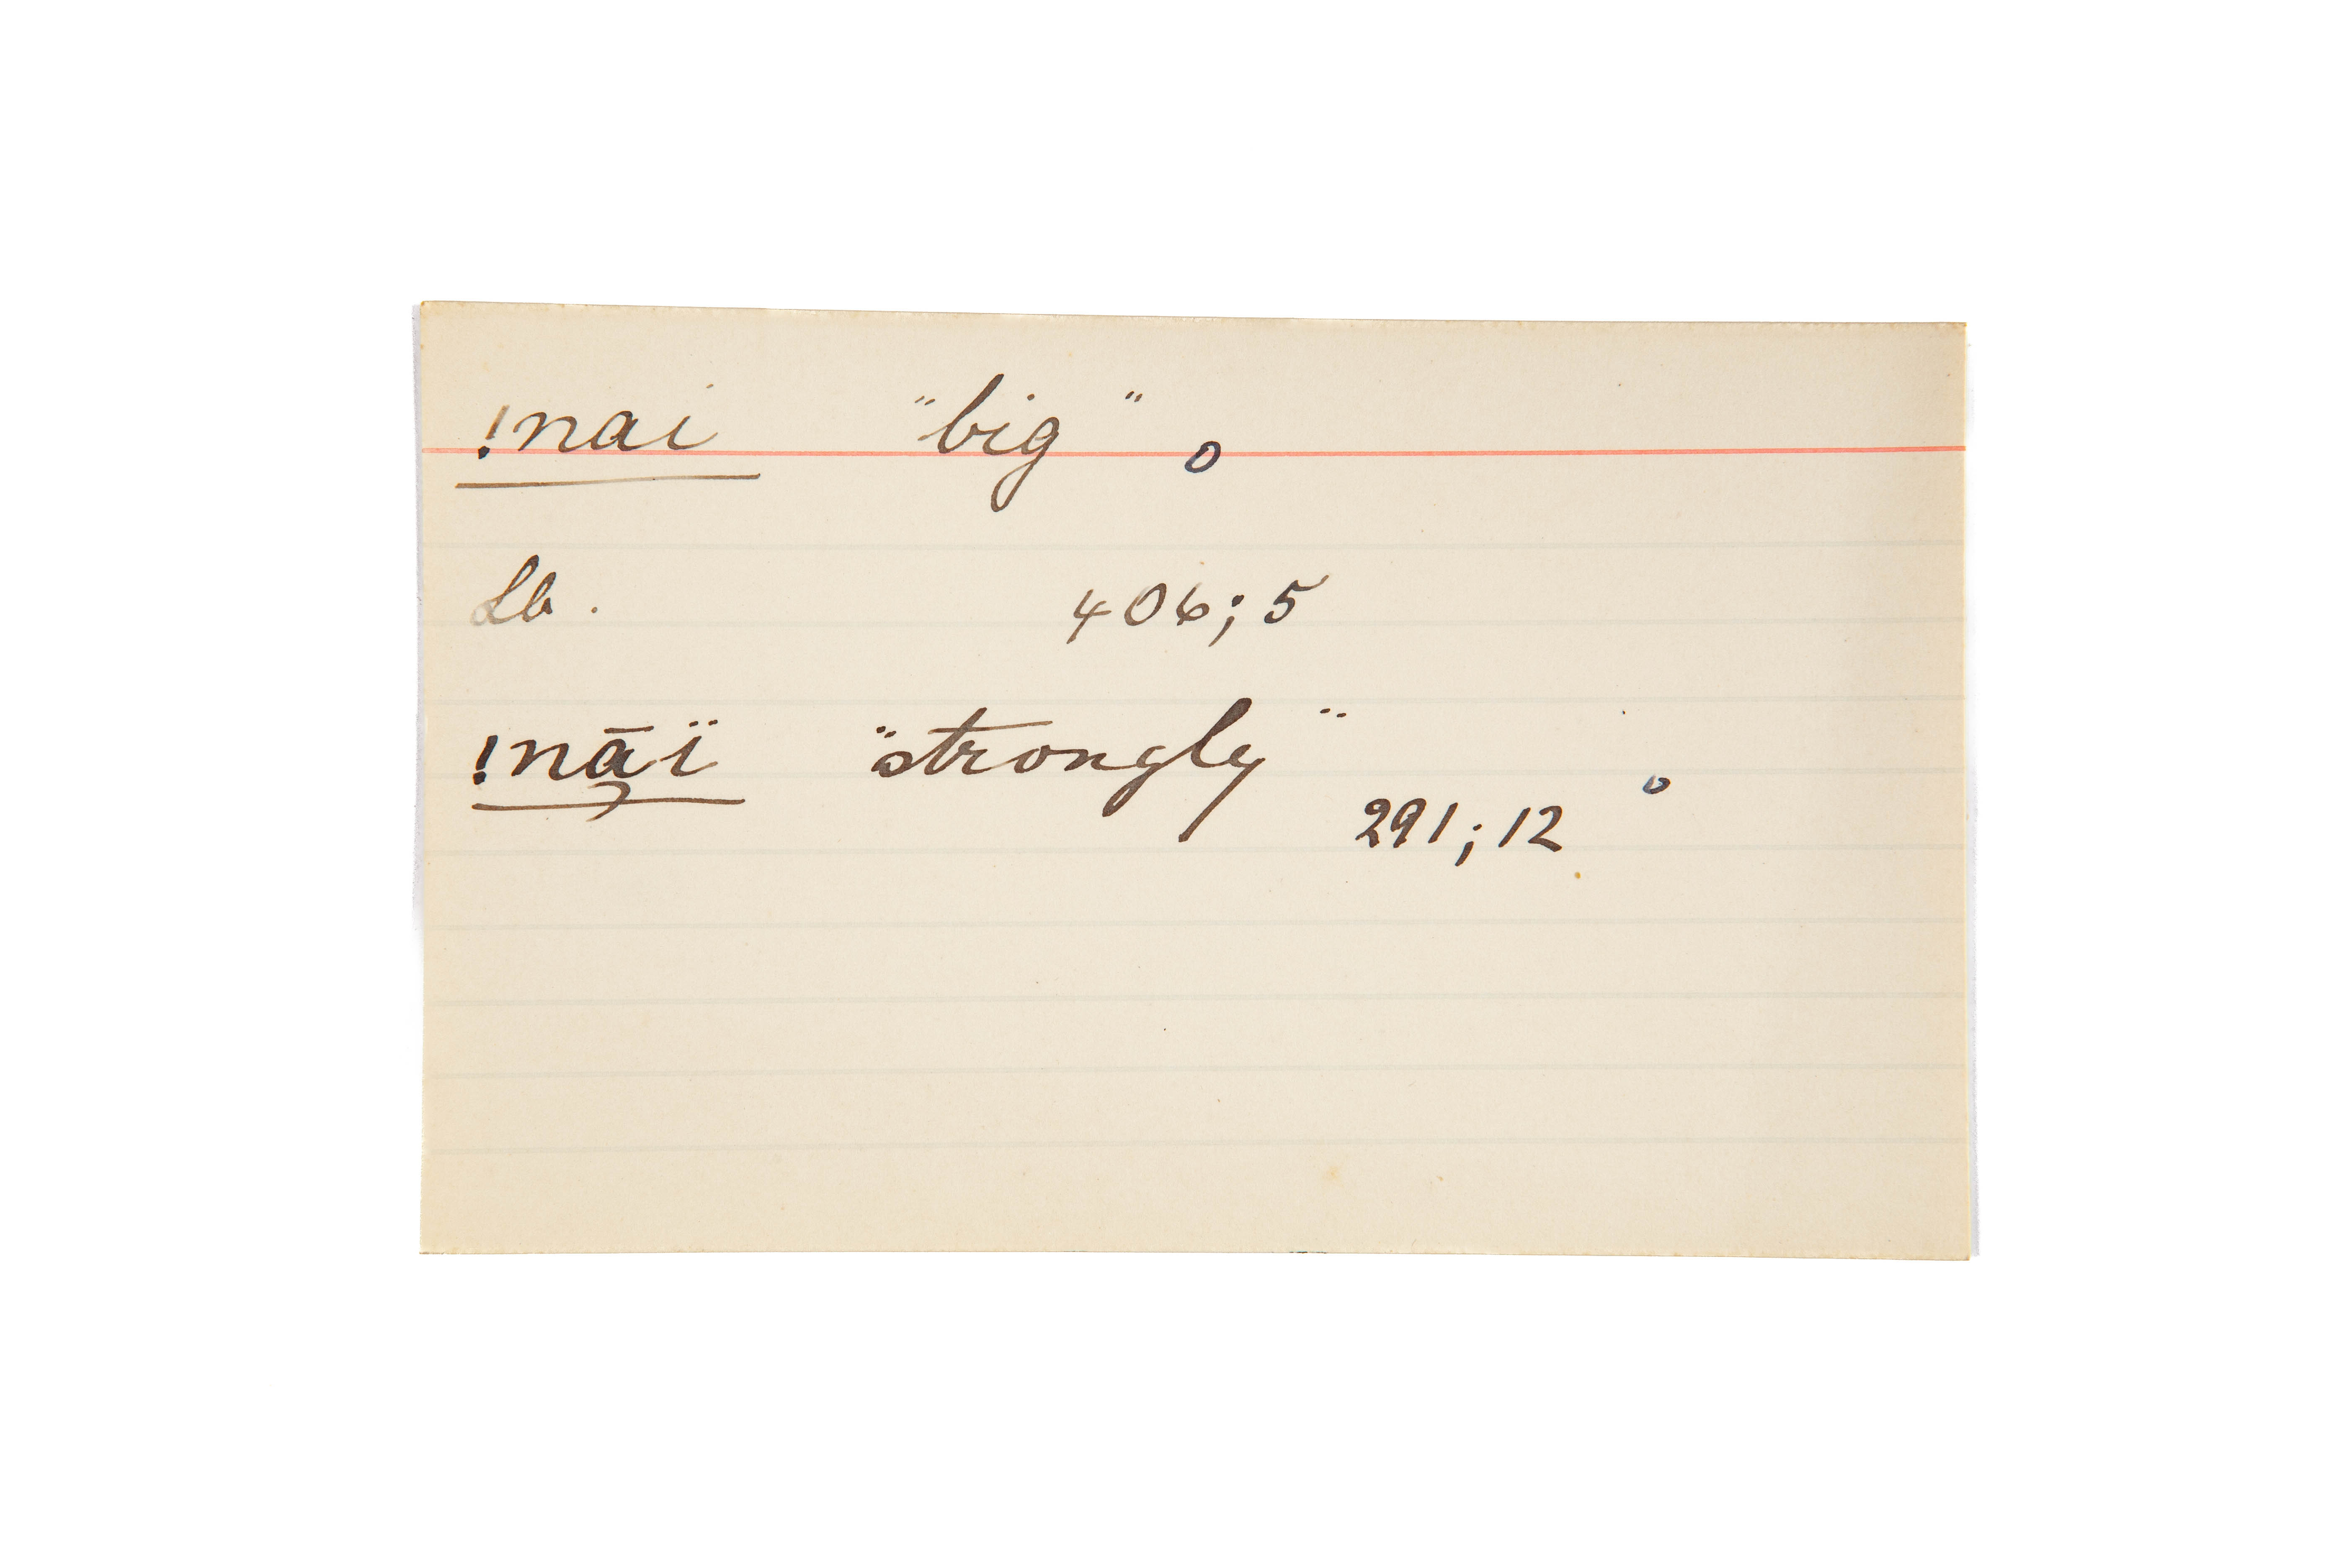 !nai "big" o
Lb. 406;5
!nā̰ï "strongly" o
291;12